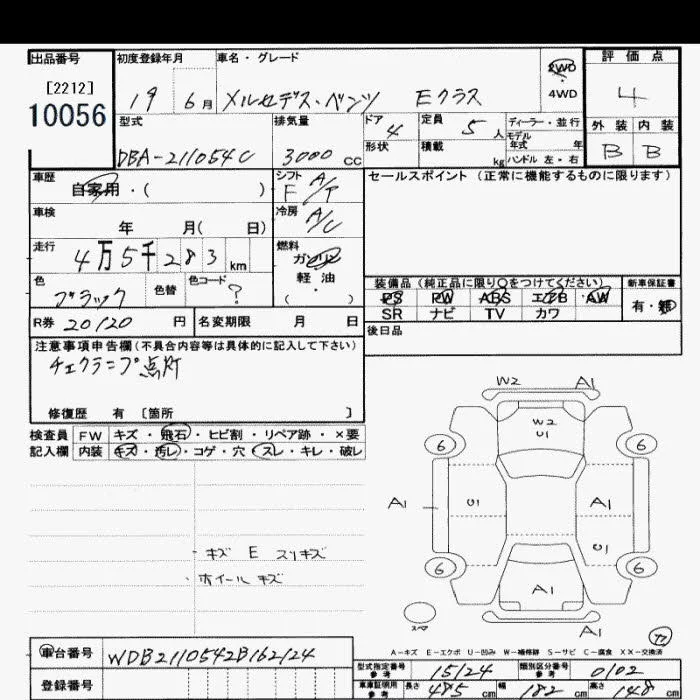 出品番号
[2212]
10056
初度登録年月
19 6月
車名・グレード
メルセデス・ベンツ Eクラス
2WD
4WD
評価点
4
外装 内装
B B
型式
DBA-211054C
排気量
3000 cc
ドア
4
形状
定員
5 人
積載
kg
ディーラー・並行
モデル年式 年
ハンドル 左・右
車歴
自家用・( )
シフト
F A/T
車検
年 月( 日)
冷房
A/C
走行
4万5千283 km
燃料
ガソリン
軽油
( ・ )
色
ブラック
色替
色コード
?
R券 20120 円
名変期限 月 日
セールスポイント (正常に機能するものに限ります)
装備品 (純正品に限り○をつけてください)
新車保証書
PS PW ABS エアB AW
SR ナビ TV カワ
有・無
後日品
注意事項申告欄(不具合内容等は具体的に記入して下さい)
チェクランプ点灯
修復歴 有 [箇所 ]
検査員
記入欄
FW キズ・飛石・ヒビ割・リペア跡・×要
内装 キズ・汚レ・コゲ・穴・スレ・キレ・破レ
・キズ E スリキズ
・ホイールキズ
W2 A1
W2
U1
6 6
A1 U1 A1
U1
6 6
A1
スペア
A1
A-キズ E-エクボ U-凹み W-補修跡 S-サビ C-腐食 XX-交換済
車台番号 WDB2110542B162124
登録番号
型式指定番号 参考 15124
類別区分番号 参考 0102
車庫証明用 参考 長さ 485 cm 幅 182 cm 高さ 148 cm